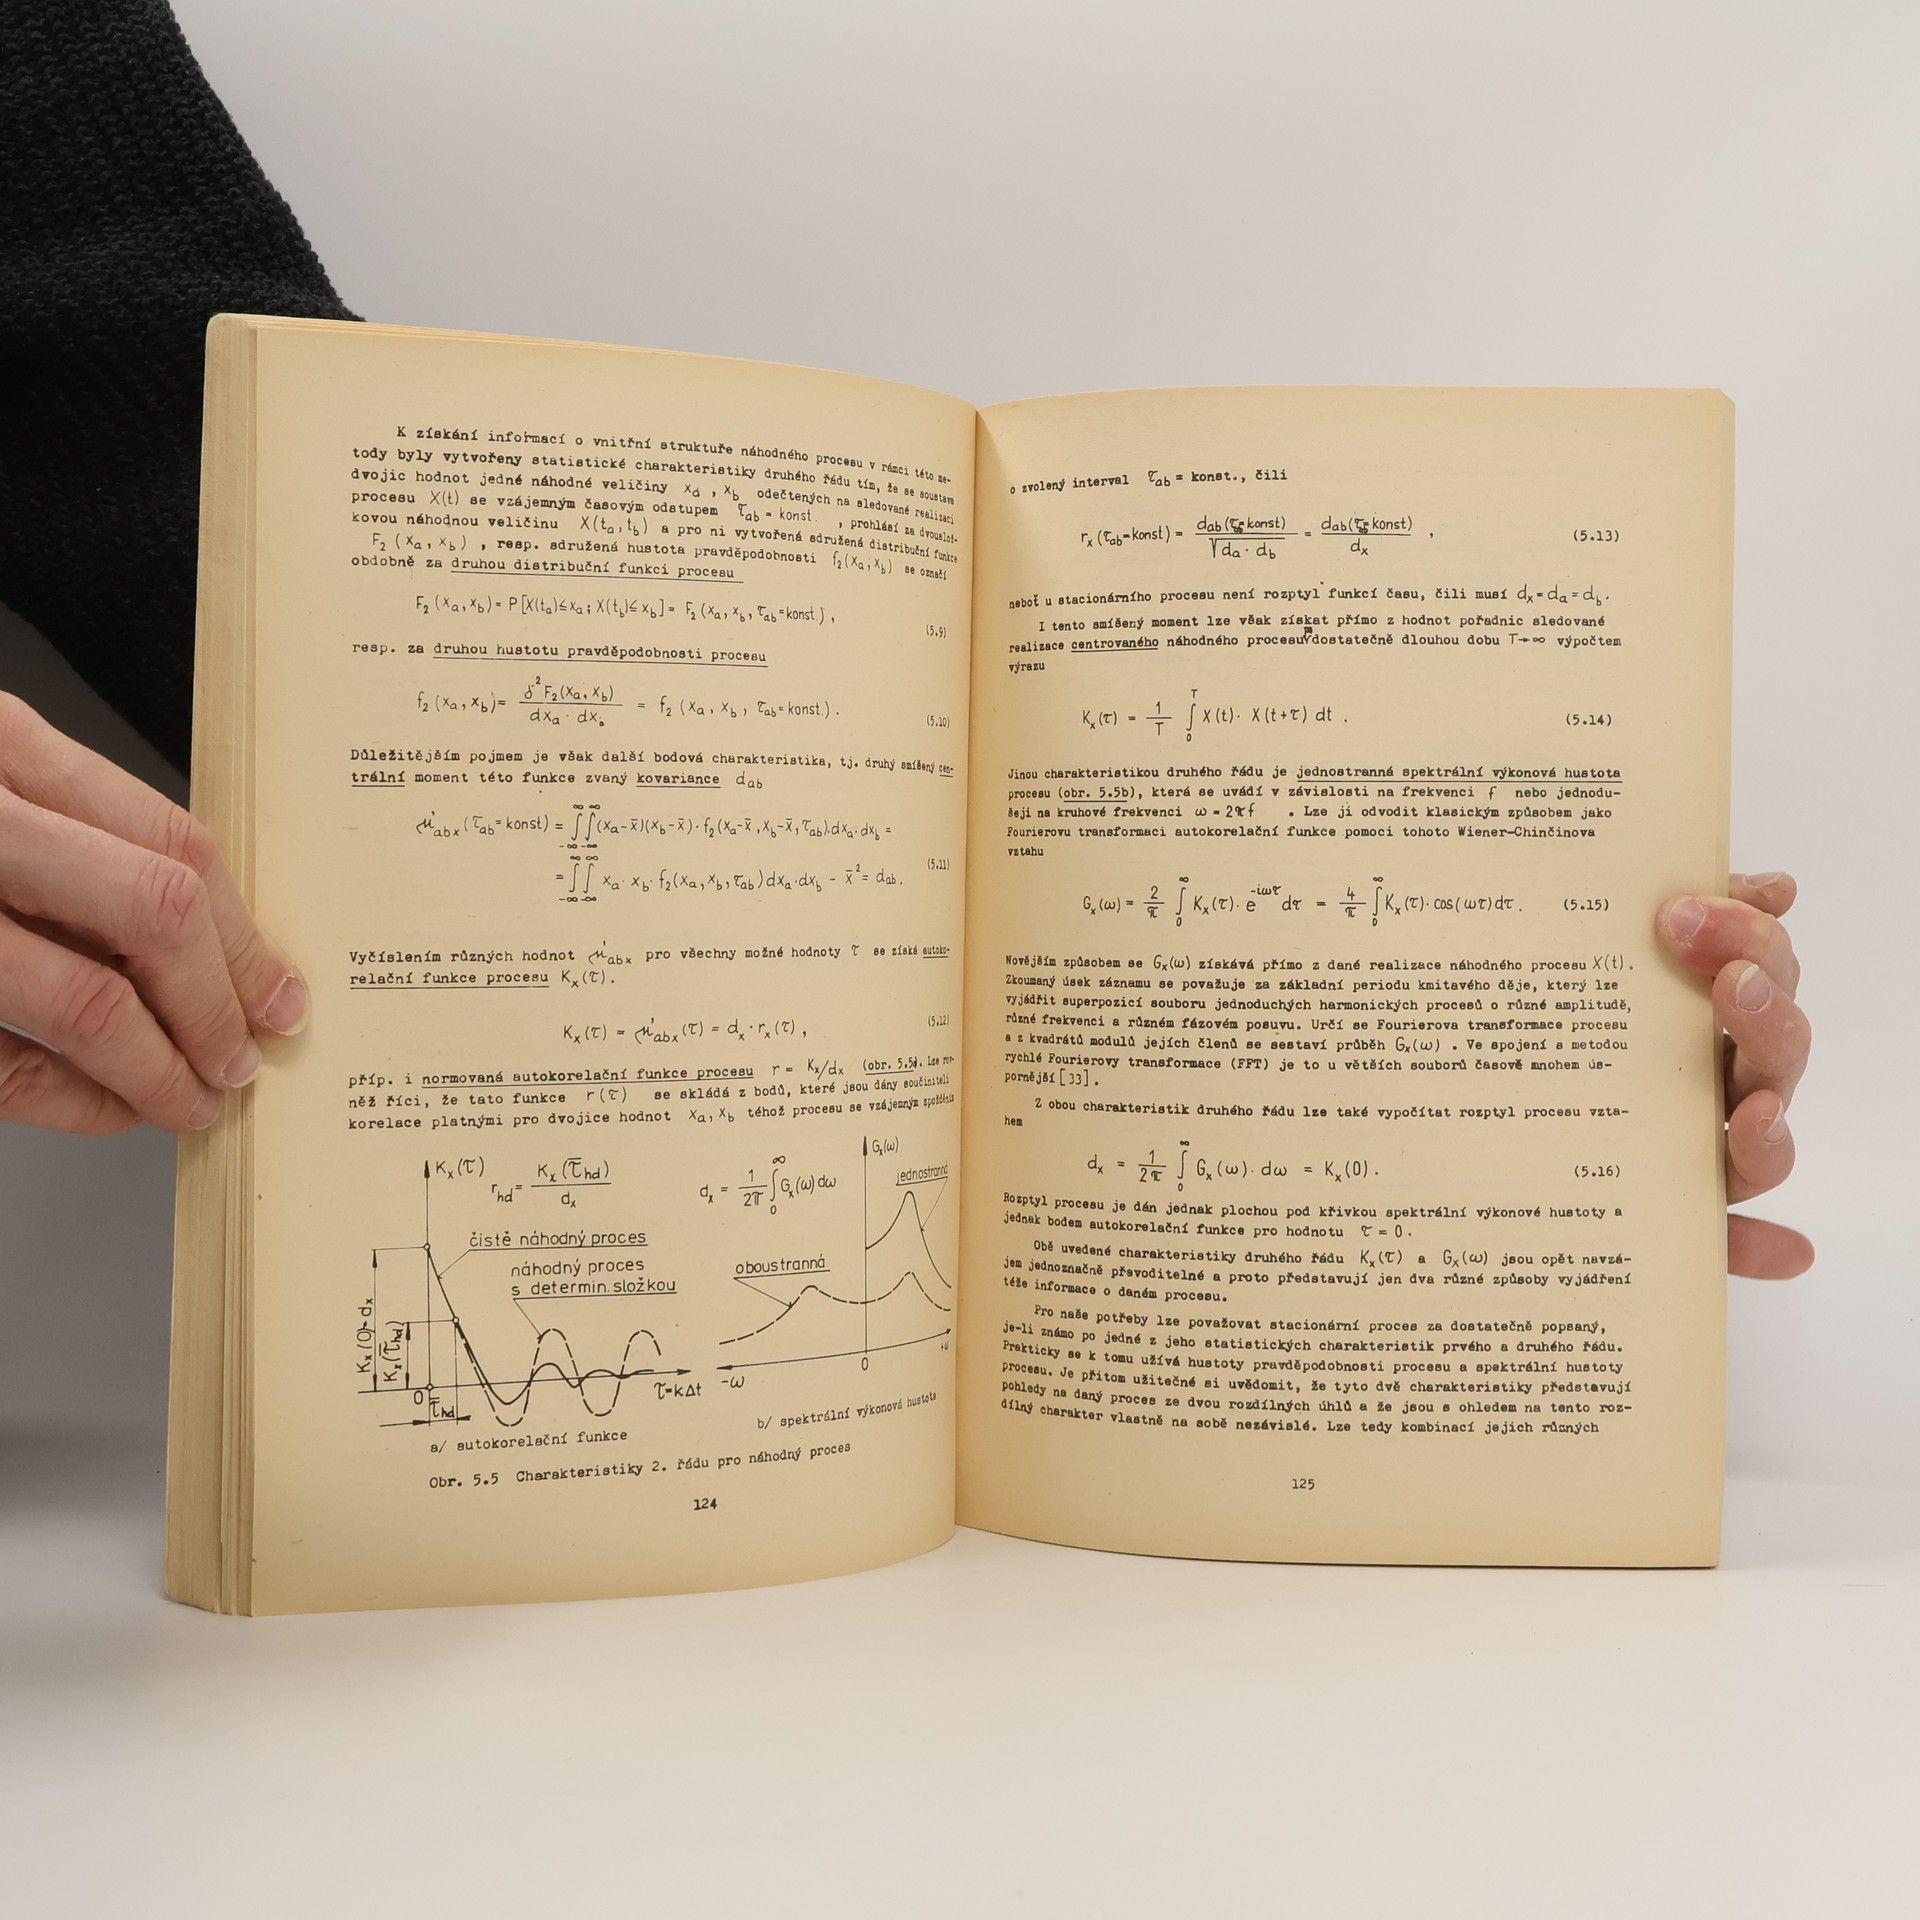 K získání informací o vnitřní struktuře náhodného procesu v rámci této me-
tody byly vytvořeny statistické charakteristiky druhého řádu tím, že se soustava
dvojic hodnot jedné náhodné veličiny xₐ , x_b odečtených na sledované realizaci
procesu X(t) se vzájemným časovým odstupem τ_ab = konst. , prohlásí za dvouslož-
kovou náhodnou veličinu X(tₐ,t_b) a pro ni vytvořená sdružená distribuční funkce
F₂ (xₐ, x_b) , resp. sdružená hustota pravděpodobnosti f₂(xₐ,x_b) se označí
obdobně za druhou distribuční funkci procesu
F₂ (xₐ,x_b) = P[X(tₐ)≤xₐ; X(t_b)≤x_b] = F₂ (xₐ, x_b, τ_ab=konst.) , (5.9)
resp. za druhou hustotu pravděpodobnosti procesu
f₂ (xₐ, x_b) = δ²F₂(xₐ, x_b) / dxₐ · dx_b = f₂ (xₐ, x_b, τ_ab=konst.) . (5.10)
Důležitějším pojmem je však další bodová charakteristika, tj. druhý smíšený cen-
trální moment této funkce zvaný kovariance d_ab
μ'_abx (τ_ab=konst) = ∫_-∞^∞ ∫_-∞^∞ (xₐ-x̄)(x_b-x̄)·f₂(xₐ-x̄,x_b-x̄,τ_ab).dxₐ·dx_b =
= ∫_-∞^∞ ∫_-∞^∞ xₐ· x_b· f₂(xₐ,x_b,τ_ab)dxₐ·dx_b - x̄² = d_ab . (5.11)
Vyčíslením různých hodnot μ'_abx pro všechny možné hodnoty τ se získá autoko-
relační funkce procesu K_x(τ).
K_x(τ) = μ'_abx(τ) = d_x · r_x(τ) , (5.12)
příp. i normovaná autokorelační funkce procesu r = K_x/d_x (obr. 5.5a. Lze rov-
něž říci, že tato funkce r(τ) se skládá z bodů, které jsou dány součiniteli
korelace platnými pro dvojice hodnot xₐ, x_b téhož procesu se vzájemným zpožděním
K_x(τ)
r_hd = K_x(τ̄_hd) / d_x
d_x = 1/2π ∫_0^∞ G_x(ω)dω
G_x(ω)
jednostranná
čistě náhodný proces
náhodný proces
s determin. složkou
oboustranná
K_x(0)=d_x
K_x(τ̄_hd)
0
τ̄_hd
τ=kΔt
-ω
0
+ω
a/ autokorelační funkce
b/ spektrální výkonová hustota
Obr. 5.5 Charakteristiky 2. řádu pro náhodný proces
124
o zvolený interval τ_ab = konst., čili
r_x (τ_ab=konst) = d_ab(τ_ab=konst) / √dₐ · d_b = d_ab(τ_ab=konst) / d_x , (5.13)
neboť u stacionárního procesu není rozptyl funkcí času, čili musí d_x = dₐ = d_b.
I tento smíšený moment lze však získat přímo z hodnot pořadnic sledované
realizace centrovaného náhodného procesu po dostatečně dlouhou dobu T→∞ výpočtem
výrazu
K_x(τ) = 1/T ∫_0^T X(t)· X(t+τ) dt . (5.14)
Jinou charakteristikou druhého řádu je jednostranná spektrální výkonová hustota
procesu (obr. 5.5b), která se uvádí v závislosti na frekvenci f nebo jednodu-
šeji na kruhové frekvenci ω = 2πf . Lze ji odvodit klasickým způsobem jako
Fourierovu transformaci autokorelační funkce pomocí tohoto Wiener-Chinčinova
vztahu
G_x(ω) = 2/π ∫_0^∞ K_x(τ)· e^-iωτ dτ = 4/π ∫_0^∞ K_x(τ)· cos(ωτ)dτ . (5.15)
Novějším způsobem se G_x(ω) získává přímo z dané realizace náhodného procesu X(t) .
Zkoumaný úsek záznamu se považuje za základní periodu kmitavého děje, který lze
vyjádřit superpozicí souboru jednoduchých harmonických procesů o různé amplitudě,
různé frekvenci a různém fázovém posuvu. Určí se Fourierova transformace procesu
a z kvadrátů modulů jejích členů se sestaví průběh G_x(ω) . Ve spojení s metodou
rychlé Fourierovy transformace (FFT) je to u větších souborů časově mnohem ús-
pornější [33].
Z obou charakteristik druhého řádu lze také vypočítat rozptyl procesu vzta-
hem
d_x = 1/2π ∫_0^∞ G_x(ω)· dω = K_x(0) . (5.16)
Rozptyl procesu je dán jednak plochou pod křivkou spektrální výkonové hustoty a
jednak bodem autokorelační funkce pro hodnotu τ = 0 .
Obě uvedené charakteristiky druhého řádu K_x(τ) a G_x(ω) jsou opět navzá-
jem jednoznačně převoditelné a proto představují jen dva různé způsoby vyjádření
téže informace o daném procesu.
Pro naše potřeby lze považovat stacionární proces za dostatečně popsaný,
je-li známo po jedné z jeho statistických charakteristik prvého a druhého řádu.
Prakticky se k tomu užívá hustoty pravděpodobnosti procesu a spektrální hustoty
procesu. Je přitom užitečné si uvědomit, že tyto dvě charakteristiky představují
pohledy na daný proces ze dvou rozdílných úhlů a že jsou s ohledem na tento roz-
dílný charakter vlastně na sobě nezávislé. Lze tedy kombinací jejich různých
125